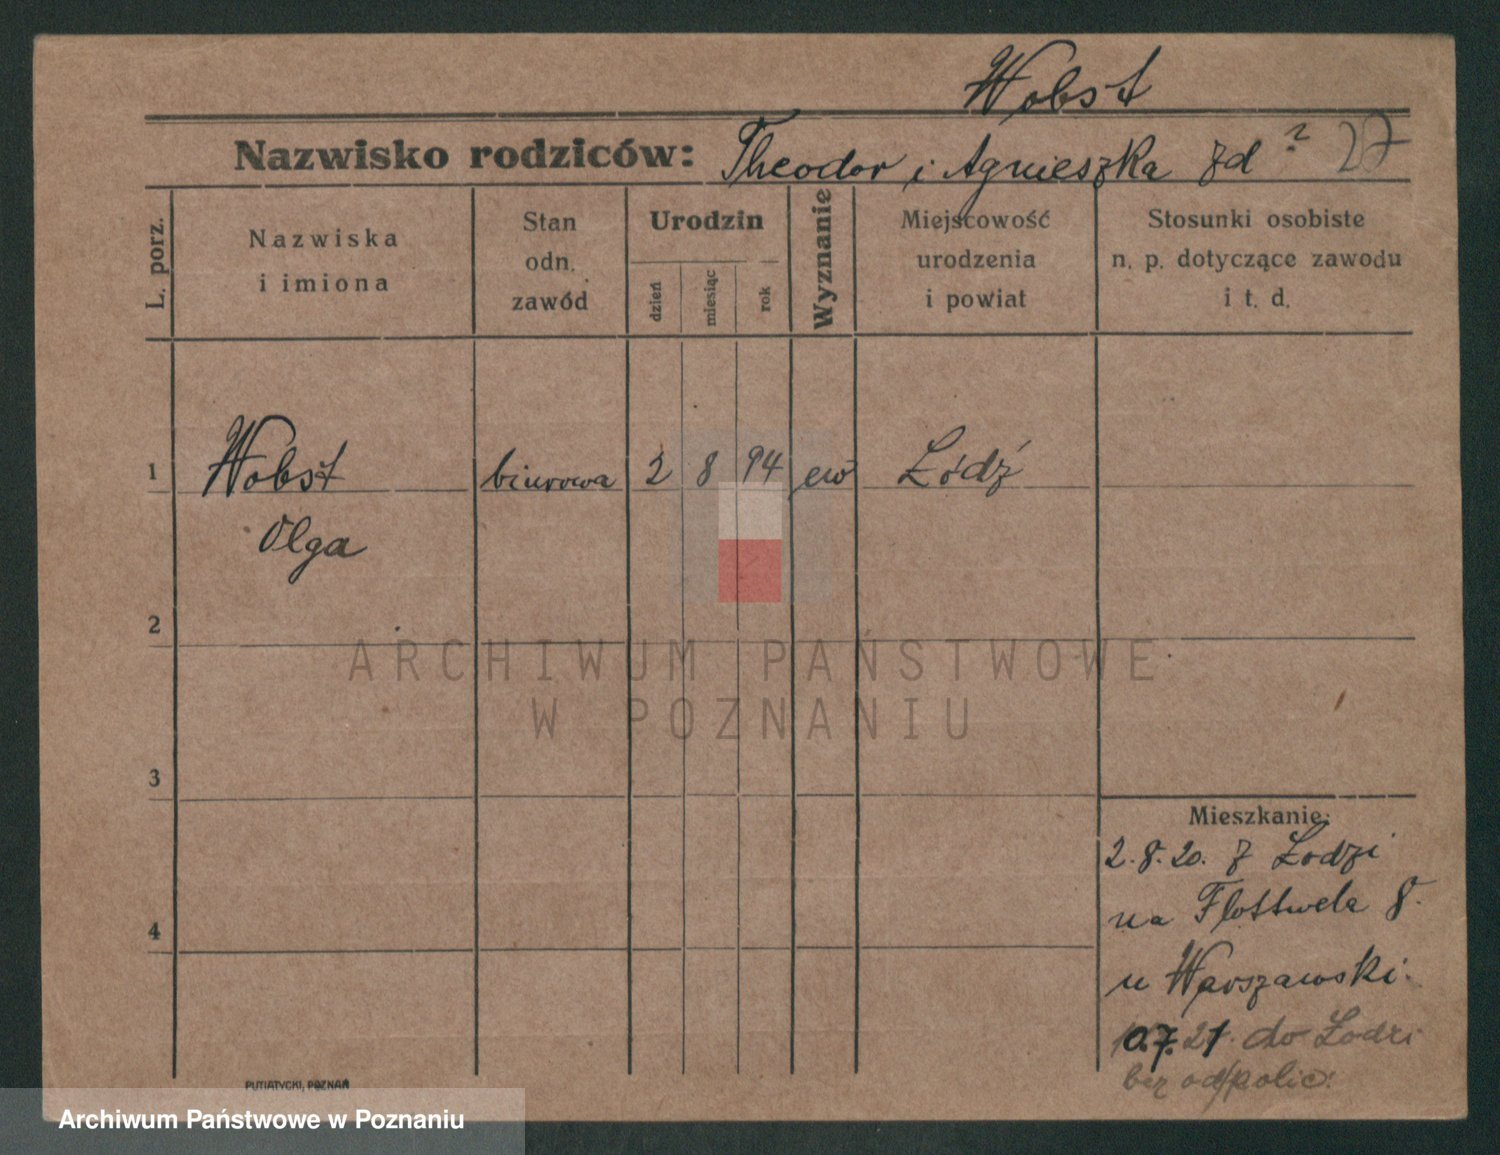 Wobst
Nazwisko rodziców: Theodor i Agnieszka zd ? 27
L. porz.
Nazwiska
i imiona
Stan
odn.
zawód
Urodzin
dzień
miesiąc
rok
Wyznanie
Miejscowość
urodzenia
i powiat
Stosunki osobiste
n. p. dotyczące zawodu
i t. d.
1 Wobst biurowa 2 8 94 ew Łódź
Olga
2
ARCHIWUM PAŃSTWOWE
W POZNANIU
3
Mieszkanie:
2.8.20. z Łodzi
na Flottwela 8.
4
u Warszawski.
10.7.21. do Łodzi
bez od/polic.
PUTIATYCKI, POZNAŃ
Archiwum Państwowe w Poznaniu